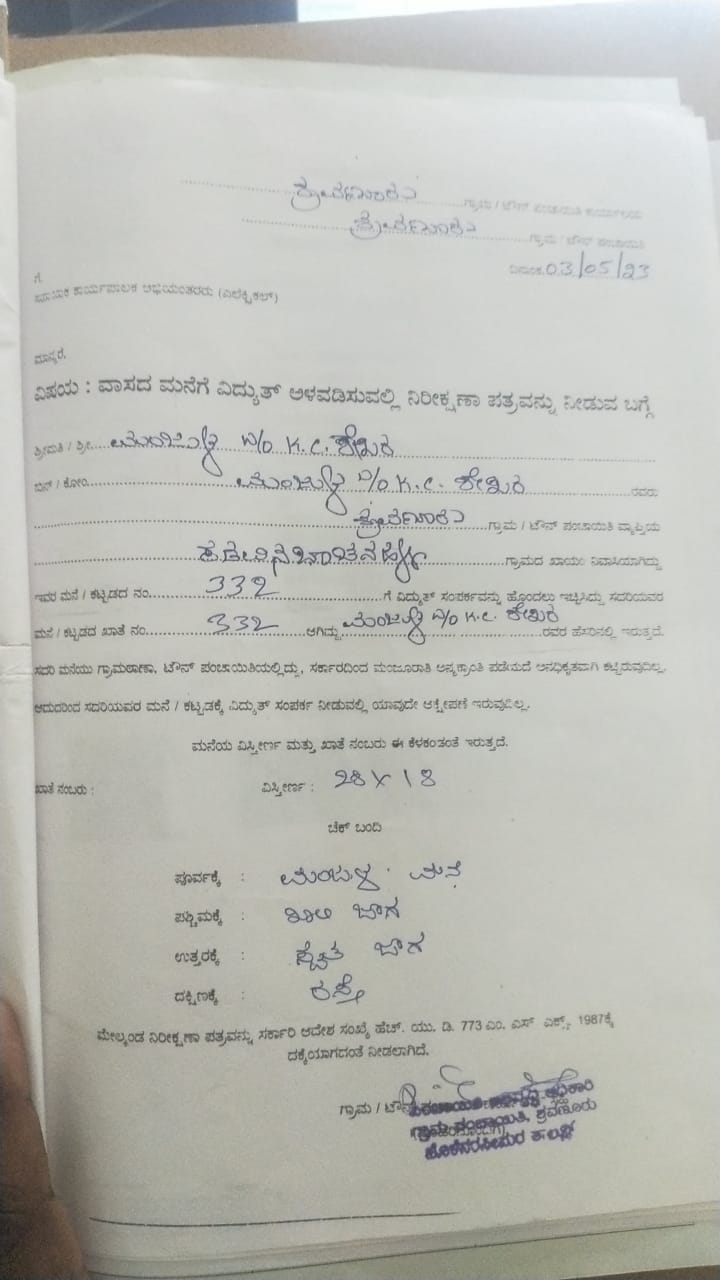 ಶ್ರವಣೂರು ಗ್ರಾಮ / ಟೌನ್ ಪಂಚಾಯಿತಿ ಕಾರ್ಯಾಲಯ
ಶ್ರವಣೂರು ಗ್ರಾಮ / ಟೌನ್ ಪಂಚಾಯಿತಿ
ದಿನಾಂಕ 03/05/23
ಗೆ,
ಸಹಾಯಕ ಕಾರ್ಯಪಾಲಕ ಅಭಿಯಂತರರು (ಎಲೆಕ್ಟ್ರಿಕಲ್)
ಮಾನ್ಯರೆ,
ವಿಷಯ : ವಾಸದ ಮನೆಗೆ ವಿದ್ಯುತ್ ಅಳವಡಿಸುವಲ್ಲಿ ನಿರೀಕ್ಷಣಾ ಪತ್ರವನ್ನು ನೀಡುವ ಬಗ್ಗೆ
ಶ್ರೀಮತಿ / ಶ್ರೀ. ಮಂಜುಳ W/O K.C. ಶೇಖರ
ಬಿನ್ / ಕೋಂ. ಮಂಜುಳ W/O K.C. ಶೇಖರ ರವರು
ಶ್ರವಣೂರು ಗ್ರಾಮ / ಟೌನ್ ಪಂಚಾಯಿತಿ ವ್ಯಾಪ್ತಿಯ
ಗ್ರಾಮದ ಖಾಯಂ ನಿವಾಸಿಯಾಗಿದ್ದು
ಇವರ ಮನೆ / ಕಟ್ಟಡದ ನಂ. 332 ಗೆ ವಿದ್ಯುತ್ ಸಂಪರ್ಕವನ್ನು ಹೊಂದಲು ಇಚ್ಛಿಸಿದ್ದು ಸದರಿಯವರ
ಮನೆ / ಕಟ್ಟಡದ ಖಾತೆ ನಂ. 332 ಆಗಿದ್ದು ಮಂಜುಳ W/O K.C. ಶೇಖರ ರವರ ಹೆಸರಿನಲ್ಲಿ ಇರುತ್ತದೆ.
ಸದರಿ ಮನೆಯು ಗ್ರಾಮಠಾಣಾ, ಟೌನ್ ಪಂಚಾಯಿತಿಯಲ್ಲಿದ್ದು, ಸರ್ಕಾರದಿಂದ ಮಂಜೂರಾತಿ ಅನ್ಯಕ್ರಾಂತಿ ಪಡೆಯದೆ ಅನಧಿಕೃತವಾಗಿ ಕಟ್ಟಿರುವುದಿಲ್ಲ.
ಆದುದರಿಂದ ಸದರಿಯವರ ಮನೆ / ಕಟ್ಟಡಕ್ಕೆ ವಿದ್ಯುತ್ ಸಂಪರ್ಕ ನೀಡುವಲ್ಲಿ ಯಾವುದೇ ಆಕ್ಷೇಪಣೆ ಇರುವುದಿಲ್ಲ.
ಮನೆಯ ವಿಸ್ತೀರ್ಣ ಮತ್ತು ಖಾತೆ ನಂಬರು ಈ ಕೆಳಕಂಡಂತೆ ಇರುತ್ತದೆ.
ಖಾತೆ ನಂಬರು : ವಿಸ್ತೀರ್ಣ : 28 X 18
ಚೆಕ್ ಬಂದಿ
ಪೂರ್ವಕ್ಕೆ : ಮಂಜುಳ ಮನೆ
ಪಶ್ಚಿಮಕ್ಕೆ : ಖಾಲಿ ಜಾಗ
ಉತ್ತರಕ್ಕೆ : ಸ್ವಂತ ಜಾಗ
ದಕ್ಷಿಣಕ್ಕೆ : ರಸ್ತೆ
ಮೇಲ್ಕಂಡ ನಿರೀಕ್ಷಣಾ ಪತ್ರವನ್ನು ಸರ್ಕಾರಿ ಆದೇಶ ಸಂಖ್ಯೆ ಹೆಚ್. ಯು. ಡಿ. 773 ಎಂ. ಎಸ್ ಎಕ್ಸ್. 1987ಕ್ಕೆ
ದಕ್ಕೆಯಾಗದಂತೆ ನೀಡಲಾಗಿದೆ.
ಗ್ರಾಮ / ಟೌನ್ ಅಧಿಕಾರಿ
ಗ್ರಾಮ ಪಂಚಾಯಿತಿ, ಶ್ರವಣೂರು
ಹೊಳೆನರಸೀಪುರ ತಾಲ್ಲೂಕು